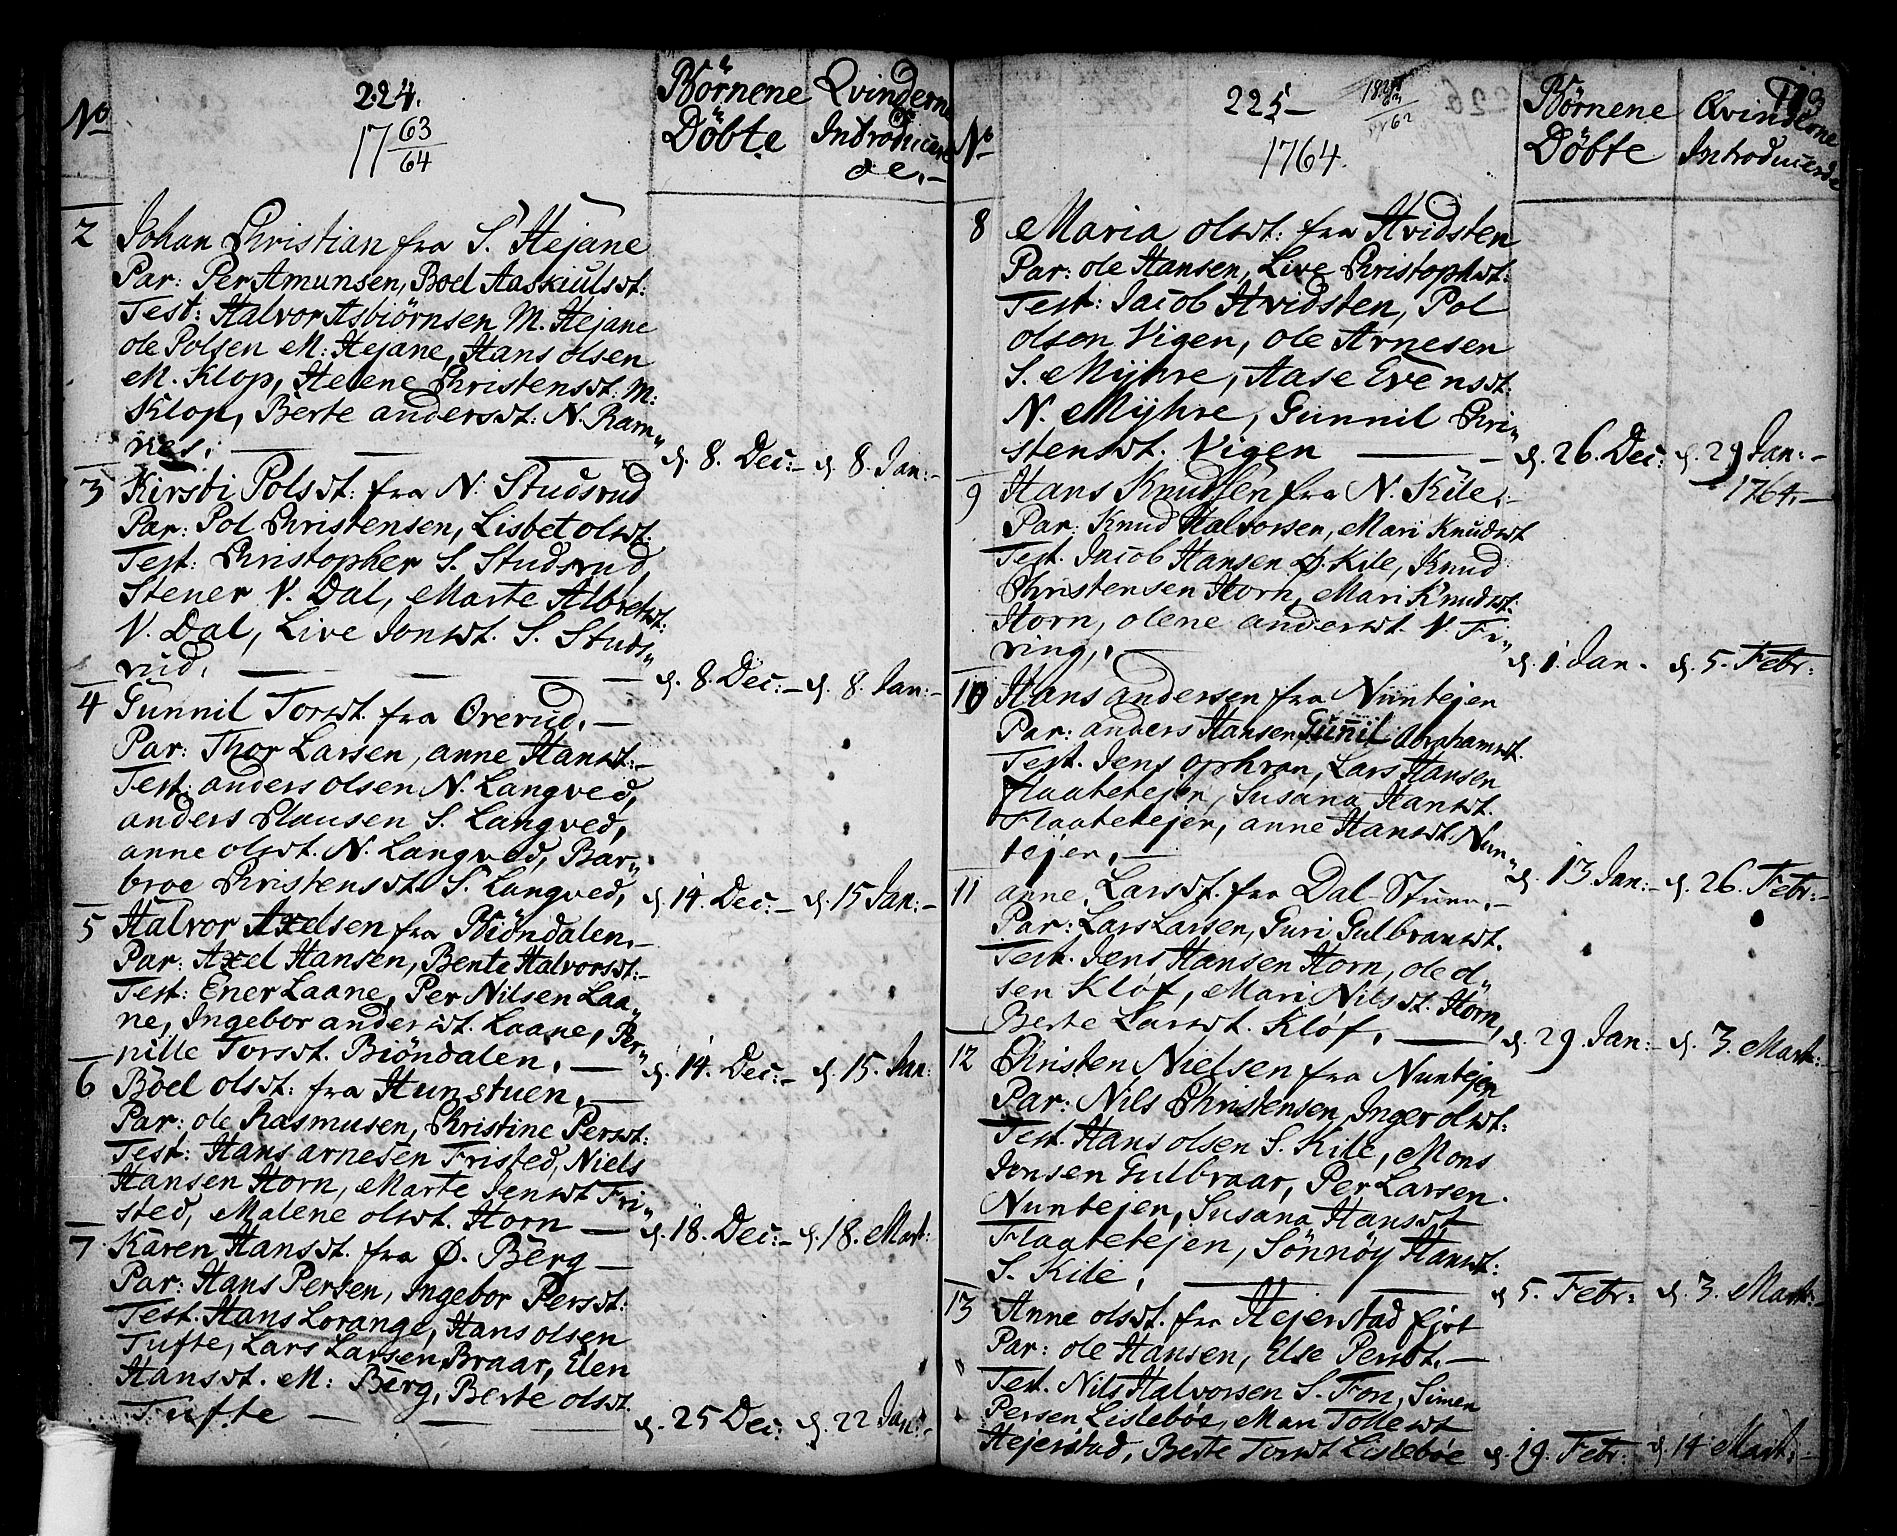 224.
No
17 63/64
Börnene Döbte
Qvinderne Introducerede.-
2 Johan Christian fra S. Hejane
Par: Per Amunsen, Boel Aaskiulsdt:
Test: Halvor Asbiörnsen M. Hejane
ole Polsen M: Hejane, Hans olsen
M. Klop, Helene Christensdt. M:
Klop, Berte andersdt: N. Ram„
nes. d. 8. Dec:- d. 8. Jan:-
3 Kirsti Polsdt: fra N. Studsrud
Par: Pol Christensen, Lisbet olsdt.
Test: Christopher S. Studsrud,
Stener V. Dal, Marte Albretsdt:
V. Dal, Live Jonsdt. S. Studs„
rud. d. 8. Dec:- d. 8. Jan:-
4 Gunnil Torsdt. fra Orerud.-
Par: Thor Larsen, anne Hansdt:-
Test: anders olsen N. Langved,
anders Clausen S. Langved,
anne olsdt. N. Langved, Bar„
broe Christensdt. S. Langved, d. 14. Dec:- d. 15 Jan:-
5 Halvor Axelsen fra Biöndalen.-
Par: Axel Hansen, Bente Halvorsdt:-
Test: Ener Laane, Per Nilsen Laa„
ne, Ingebor andersdt. Laane, Per„
nille Torsdt. Biöndalen. d. 14. Dec:- d. 15. Jan:
6 Böel olsdt: fra Hunstuen.-
Par: ole Rasmusen, Christine Persdt:
Test: Hans arnesen Fristed, Niels
Hansen Horn, Marte Jensdt Fri„
sted, Malene olsdt. Horn d. 18. Dec:- d. 18. Mart:
7 Karen Hansdt. fra Ø. Berg
Par: Hans Persen, Ingebor Persdt:
Test. Hans Lorange, Hans olsen
Tufte, Lars Larsen Braar, Elen
Hansdt. M: Berg, Berte olsdt.
Tufte d. 25 Dec: d. 22 Jan:-
225-
No
1764.
Börnene Döbte
Qvinderne Introducerede
8 Maria olsdt: fra Hvidsten
Par: ole Hansen, Live Christophsdt:
Test: Jacob Hvidsten, Pol
olson Vigen, ole Arnesen
S. Mÿhre, Aase Evensdt:
N. Mÿhre, Gunnil Chri„
stensdt. Vigen d. 26. Dec: d. 29 Jan:- 1764.-
9 Hans Knudsen fra N. Kile.-
Par: Knud Halvorsen, Mari Knudsdt
Test. Jacob Hansen Ø. Kile, Knud
Christensen Horn, Mari Knudsdt:
Horn, olene andersdt. V. Fi„
ring. d. 1. Jan. d. 5. Febr:
10 Hans andersen fra Nuntejen
Par: anders Hansen Gunil Abrahamsdt.
Test. Jens ophran, Lars Hansen
Flaatetejen, Susana Hansdt.
Flaatetejen, anne Hansdt. Nun„
tejen. d. 13 Jan:- d. 26. Febr:-
11 anne Larsdt. fra Dal-Stuen.-
Par: Lars Larsen, Guri Gulbransdt.
Test. Jens Hansen Horn, ole ol„
sen Klöf, Mari Nilsdt. Horn,
Berte Larsdt. Klöf. d. 29. Jan:- d. 3. Mart:-
12 Christen Nielsen fra Nuntejen
Par: Nils Christensen, Inger olsdt:
Test. Hans olsen S. Kile, Mons
Jonsen Gulbraar, Per Larsen
Nuntejen, Susana Hansdt
Flaatetejen, Sönnöy Hansdt:
S. Kile. d. 5. Febr: d. 3. Mart:-
13 Anne olsdt. fra Hejerstad
Par: ole Hansen, Else Persdt.-
Test. Nils Halvorsen S. Fon, Simen
Persen Lisleböe, Mari Tollesdt
Hejerstad, Berte Torsdt Lisleböe d. 19. Febr: d. 14 Mart:-